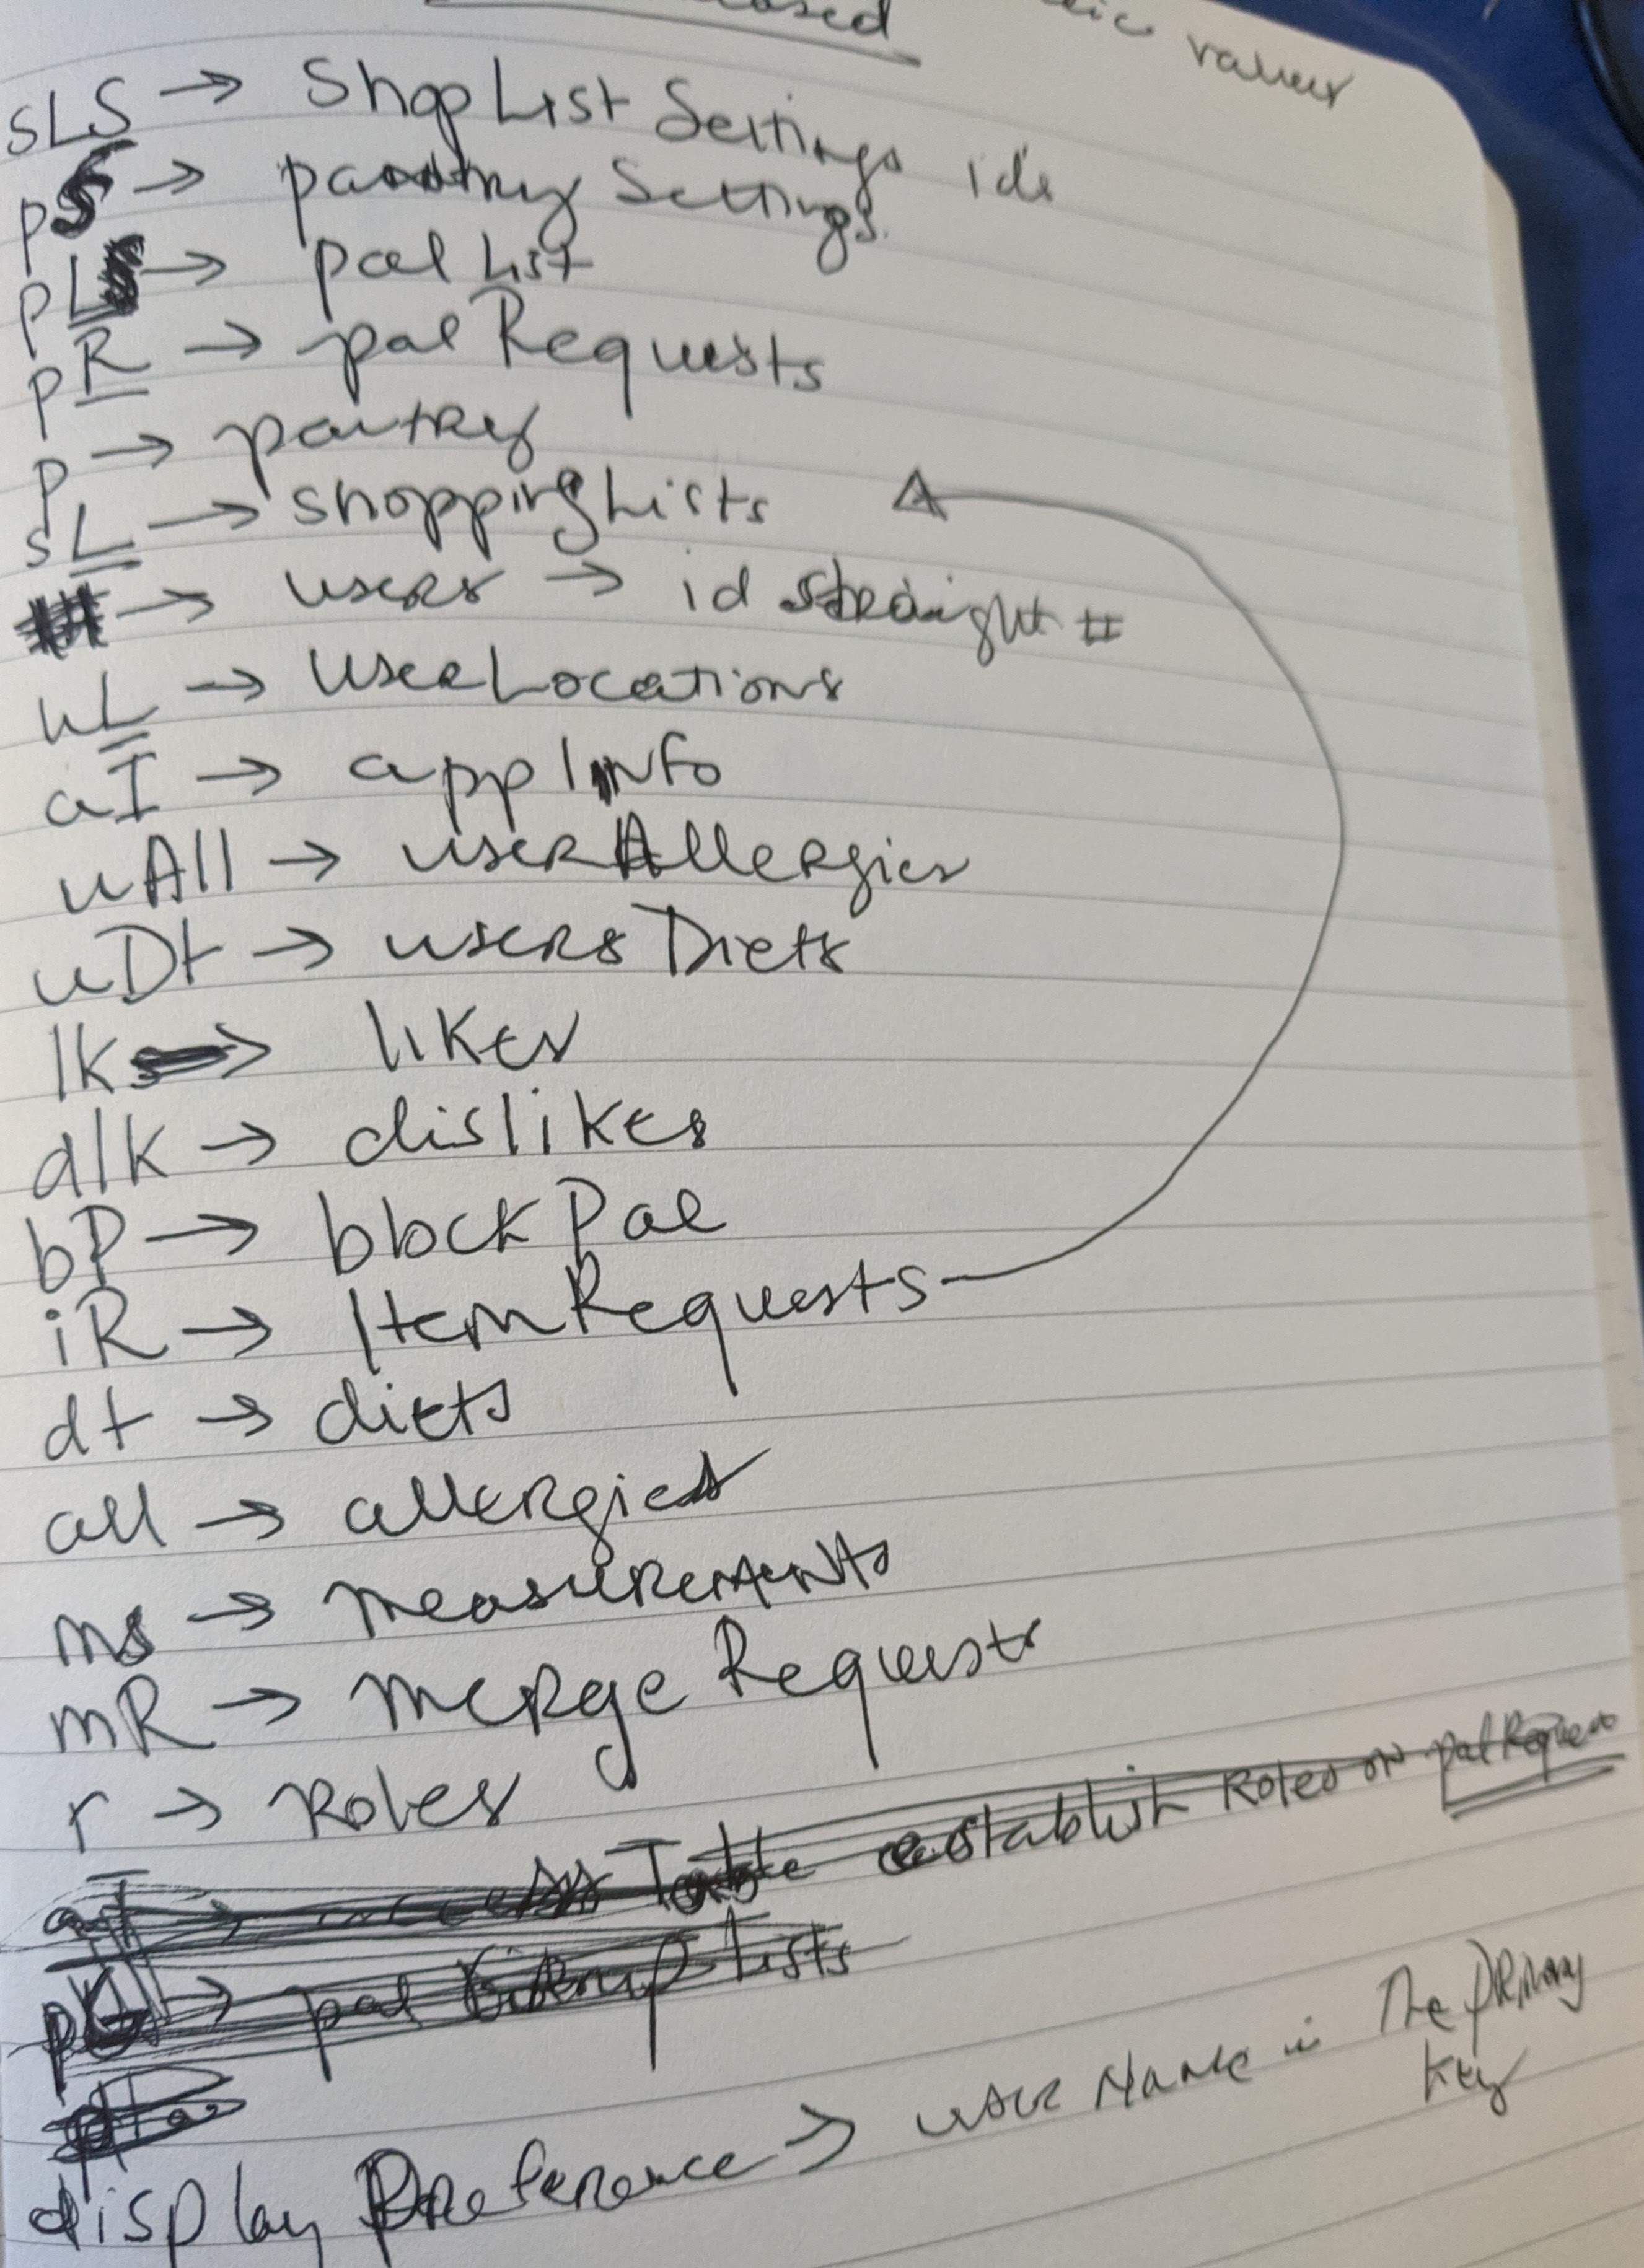 values
sLS → ShopListSettings ids
pS → pantrySettings
pL → palList
pR → palRequests
p → pantry
sL → shoppingLists
→ users → id straight #
uL → userLocations
aI → appInfo
uAll → userAllergies
uDt → usersDiets
lk → likes
dlk → dislikes
bP → blockPal
iR → ItemRequests
dt → diets
all → allergies
ms → measurements
mR → mergeRequests
r → roles
aT → access Table establish Roles on pal Request
pG → pal Group Lists
display Preference → user Name is The primary
key